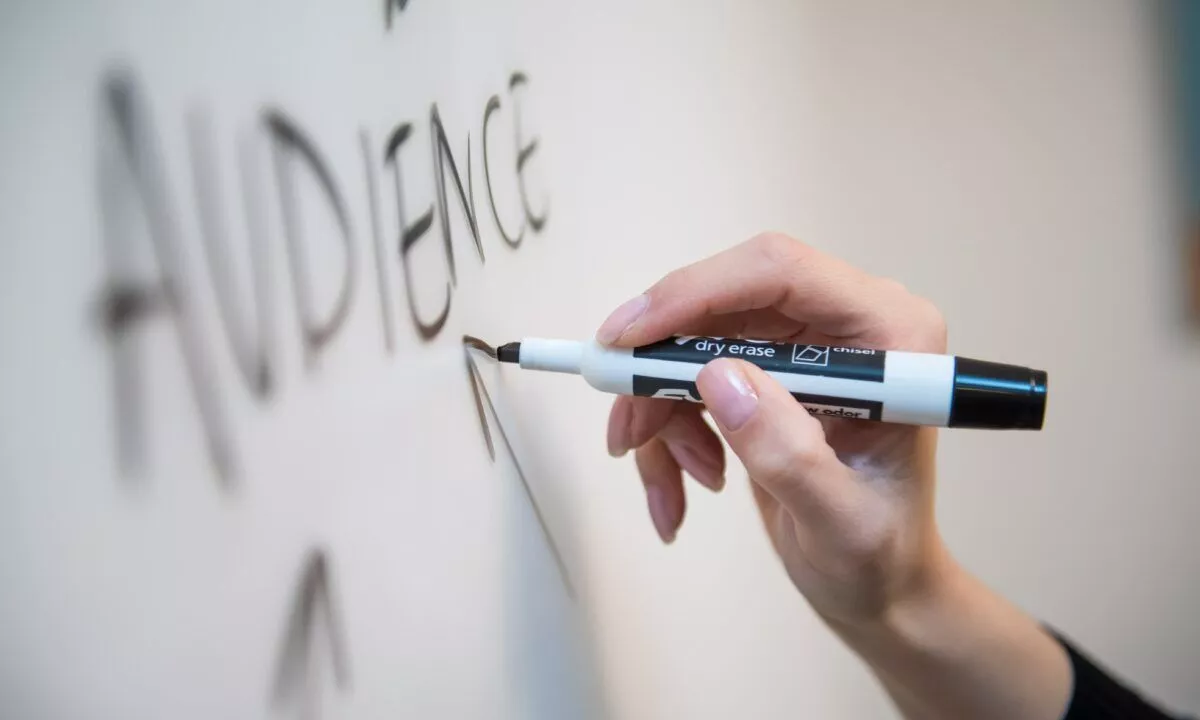 AUDIENCE
dry erase
chisel
odor